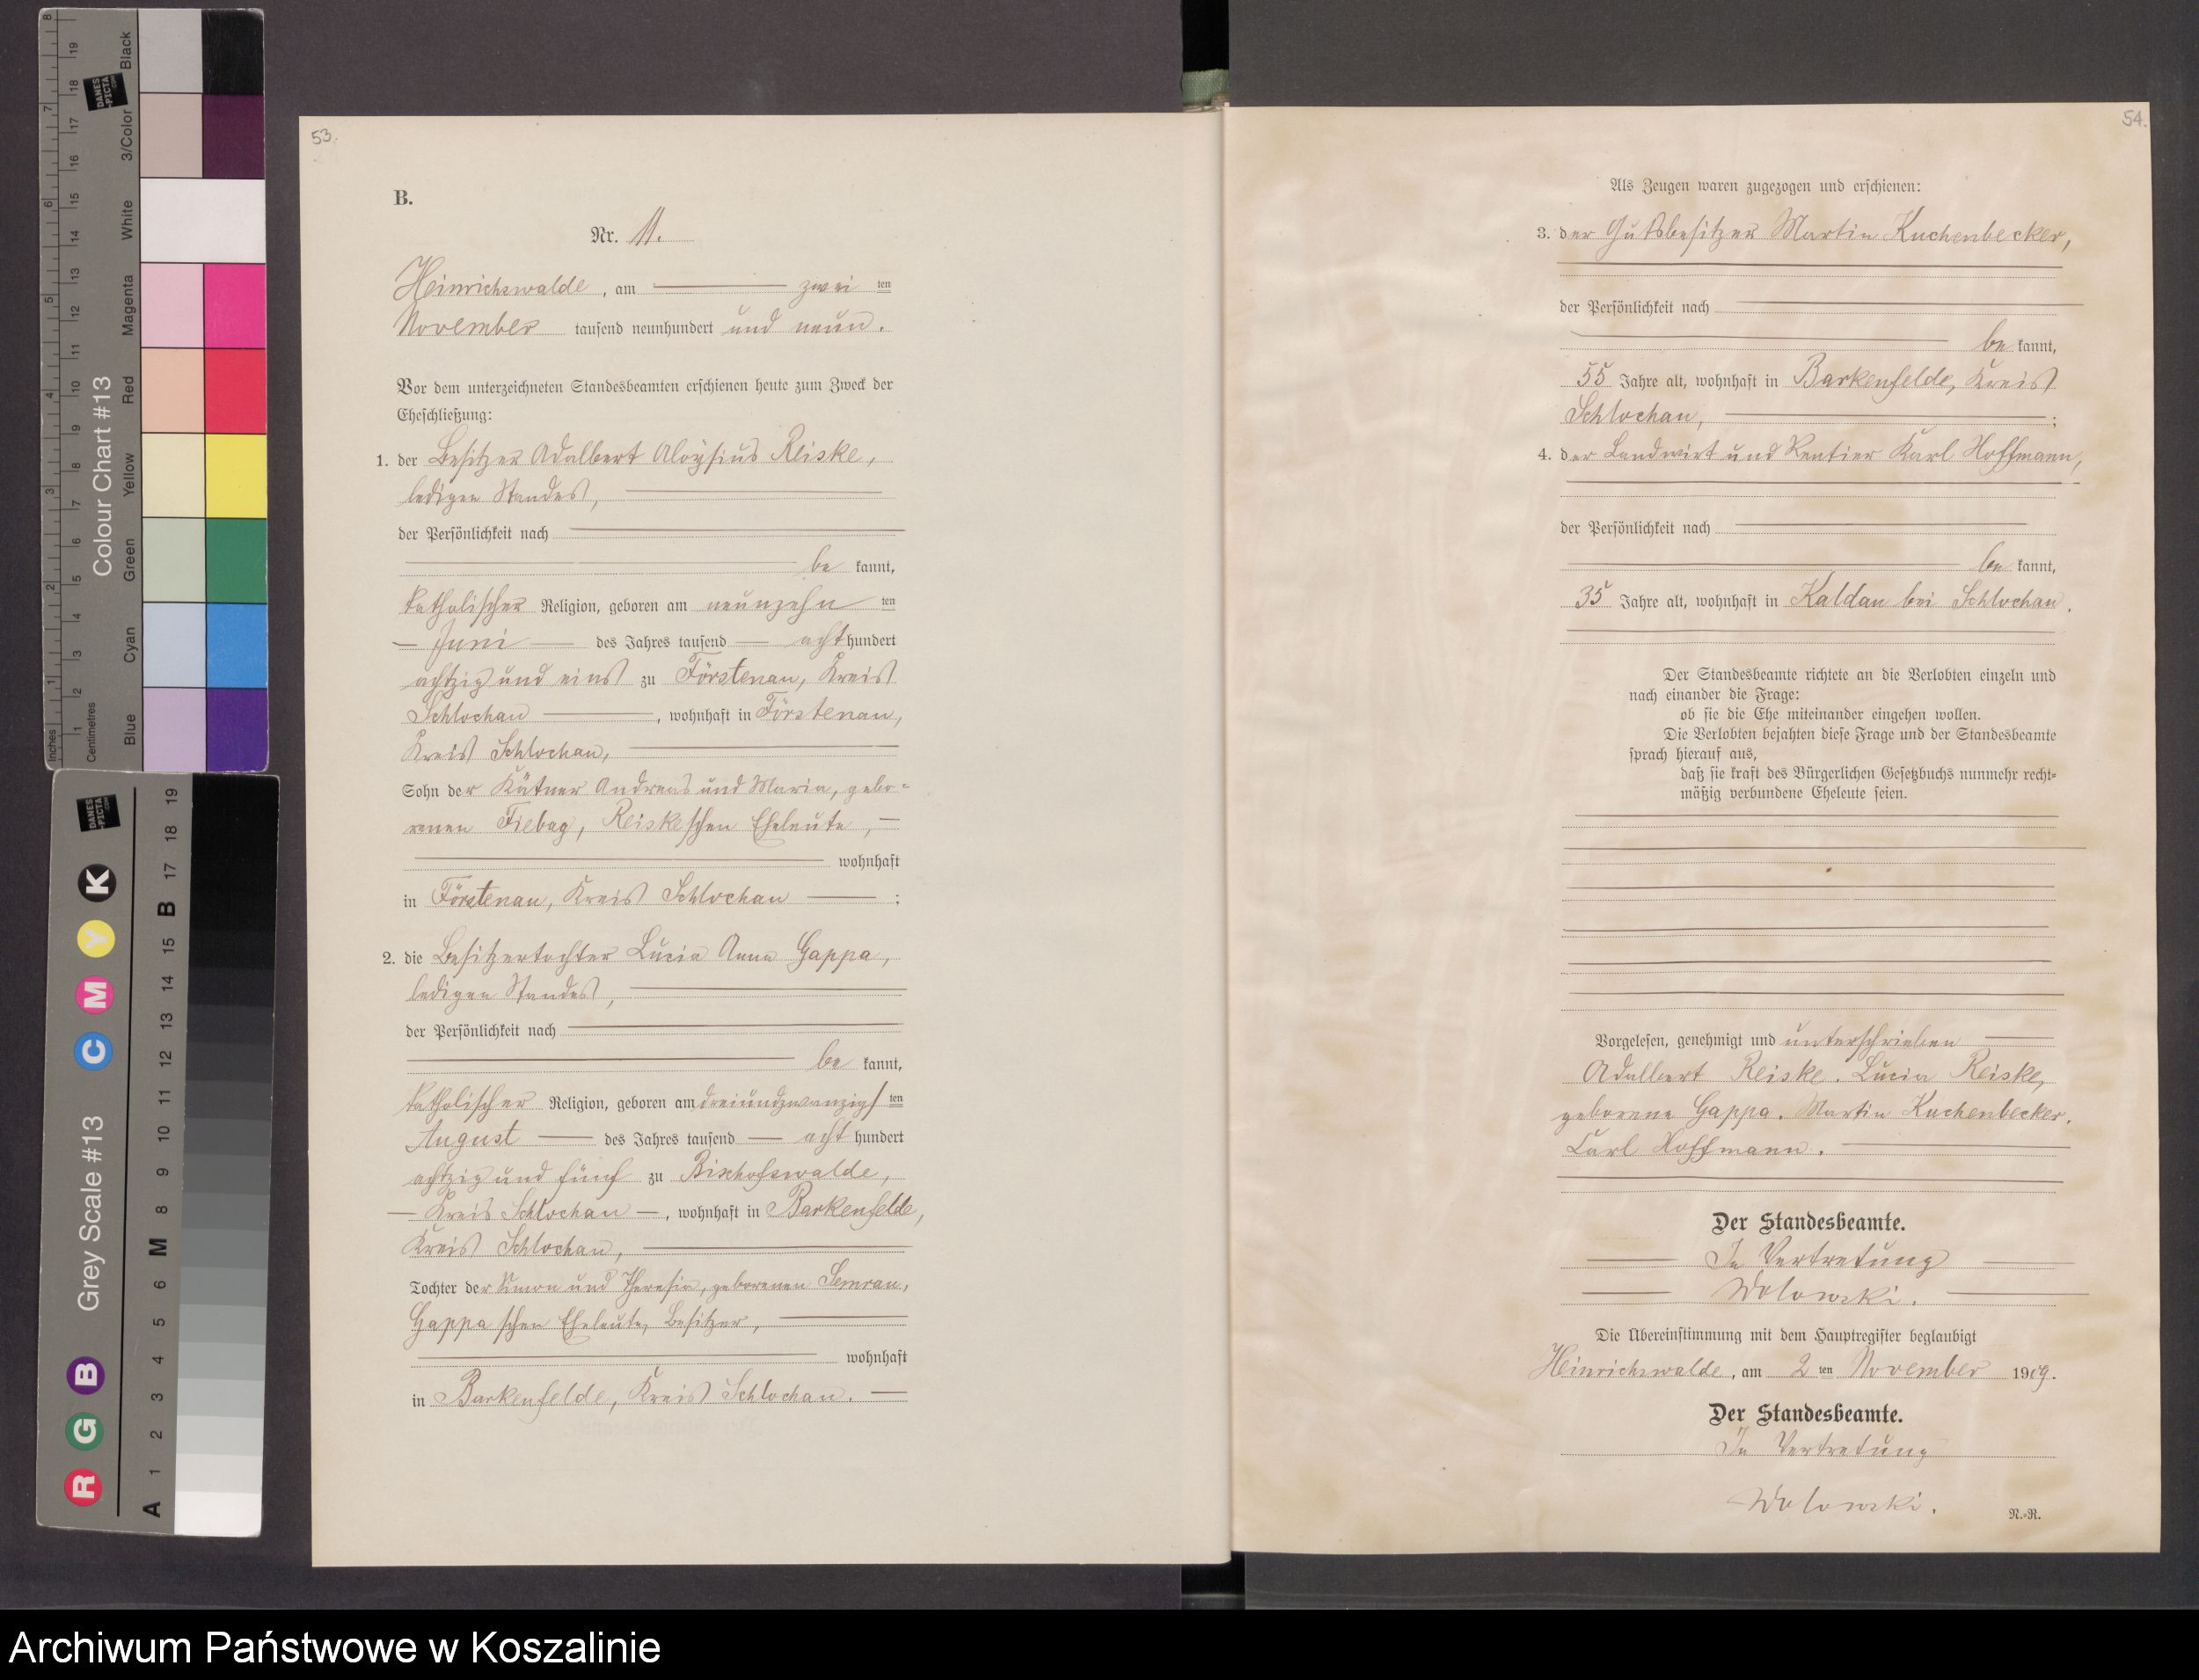 53.
B.
Nr. 11.
Heinrichswalde, am zwei ten
November tausend neunhundert und neun.
Vor dem unterzeichneten Standesbeamten erschienen heute zum Zweck der
Eheschließung:
1. der Besitzer Adalbert Aloysius Reiske,
ledigen Standes,
der Persönlichkeit nach
be kannt,
katholischer Religion, geboren am neunzehn ten
Juni des Jahres tausend acht hundert
achtzig und eins zu Förstenau, Kreis
Schlochau, wohnhaft in Förstenau,
Kreis Schlochau,
Sohn der Kätner Andreas und Maria, gebo-
renen Fiebag, Reiskeschen Eheleute,
wohnhaft
in Förstenau, Kreis Schlochau ;
2. die Besitzertochter Lucia Anna Gappa,
ledigen Standes,
der Persönlichkeit nach
be kannt,
katholischer Religion, geboren am dreiundzwanzigs ten
August des Jahres tausend acht hundert
achtzig und fünf zu Bischofswalde,
Kreis Schlochau, wohnhaft in Barkenfelde,
Kreis Schlochau,
Tochter der Simon und Theresia, geborenen Semrau,
Gappa schen Eheleute, Besitzer,
wohnhaft
in Barkenfelde, Kreis Schlochau.
54.
Als Zeugen waren zugezogen und erschienen:
3. der Gutsbesitzer Martin Kuchenbecker,
der Persönlichkeit nach
be kannt,
55 Jahre alt, wohnhaft in Barkenfelde, Kreis
Schlochau, ;
4. der Landwirt und Rentier Karl Hoffmann,
der Persönlichkeit nach
be kannt,
35 Jahre alt, wohnhaft in Kaldau bei Schlochau.
Der Standesbeamte richtete an die Verlobten einzeln und
nach einander die Frage:
ob sie die Ehe miteinander eingehen wollen.
Die Verlobten bejahten diese Frage und der Standesbeamte
sprach hierauf aus,
daß sie kraft des Bürgerlichen Gesetzbuchs nunmehr recht-
mäßig verbundene Eheleute seien.
Vorgelesen, genehmigt und unterschrieben
Adalbert Reiske. Lucia Reiske,
geborene Gappa. Martin Kuchenbecker.
Karl Hoffmann.
Der Standesbeamte.
In Vertretung
Wolowski.
Die Übereinstimmung mit dem Hauptregister beglaubigt
Heinrichswalde, am 2 ten November 1909.
Der Standesbeamte.
In Vertretung
Wolowski.
N.-R.
Colour Chart #13
Blue Cyan Green Yellow Red Magenta White 3/Color Black
Inches
Centimetres
DANES-PICTA.COM
Grey Scale #13
R G B C M Y K
A 1 2 3 4 5 6 M 8 9 10 11 12 13 14 15 B 17 18 19
Archiwum Państwowe w Koszalinie